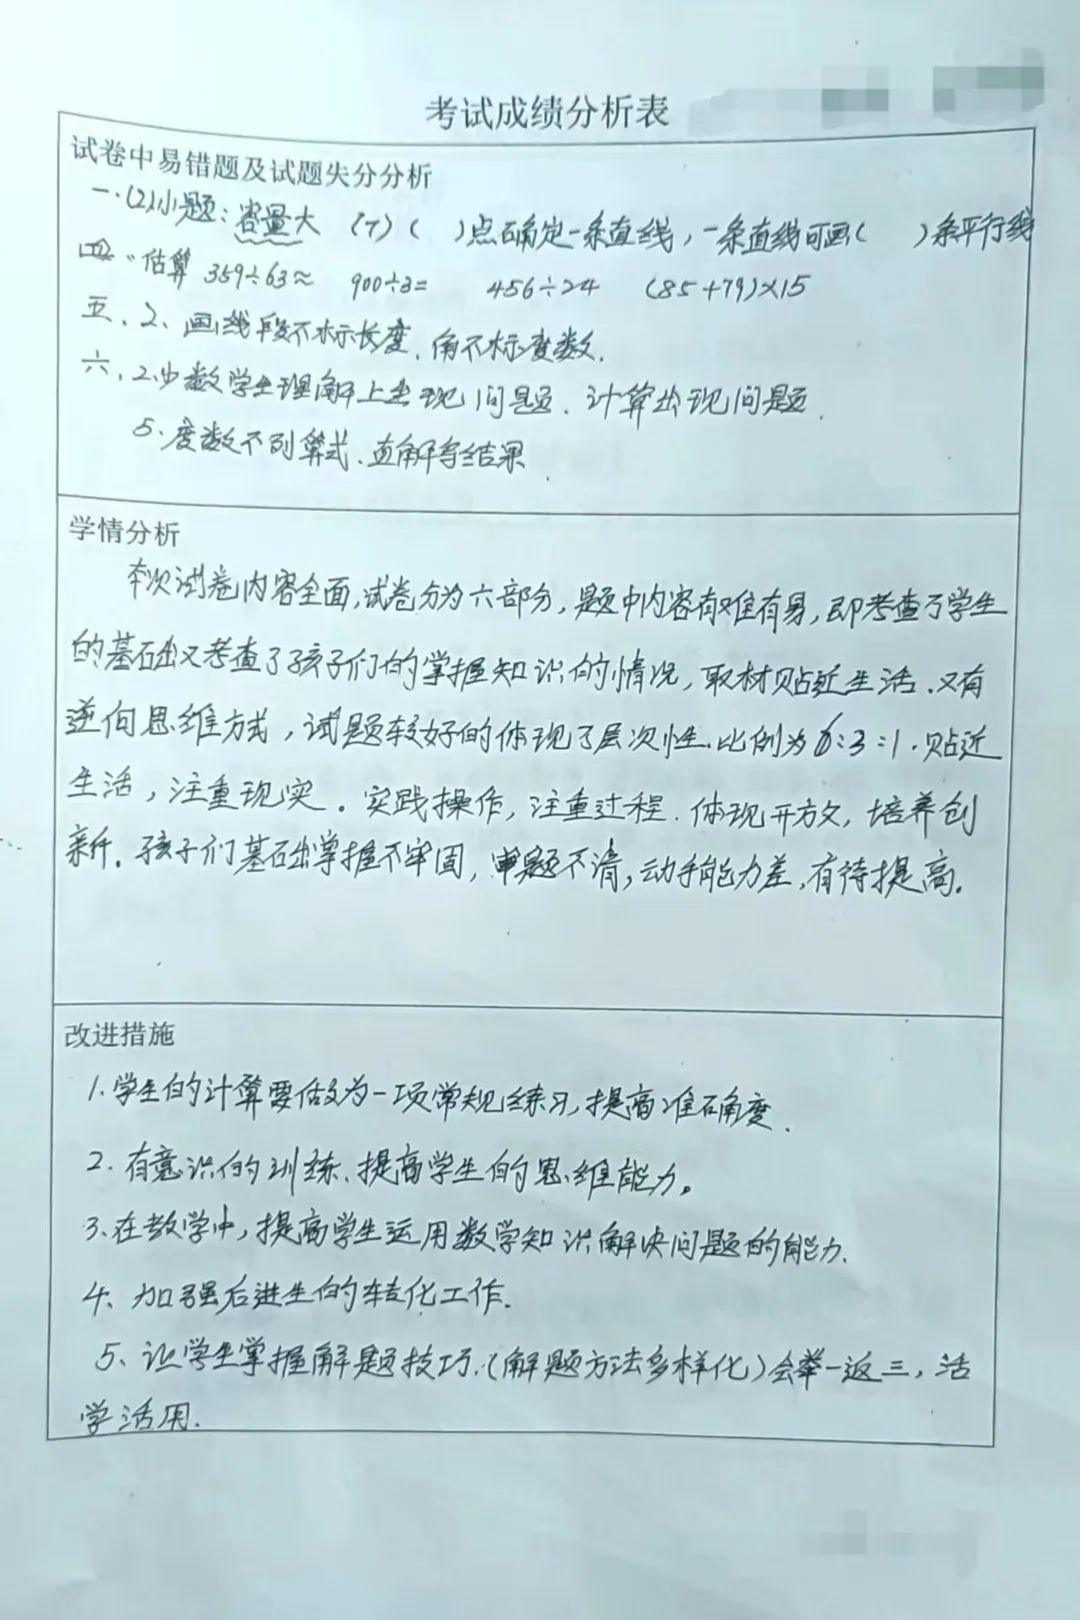 考试成绩分析表
试卷中易错题及试题失分分析
一.(2)小题:容量大 (7)( )点确定一条直线,一条直线可画( )条平行线
四、估算 359÷63≈ 900÷3= 456÷24 (85+79)×15
五、2、画线段不标长度、角不标度数.
六、2.少数学生理解上出现问题、计算出现问题.
5、度数不列算式、直解写结果
学情分析
本次试卷内容全面,试卷分为六部分,题中内容有难有易,即考查了学生
的基础又考查了孩子们的掌握知识的情况,取材贴近生活.又有
逆向思维方式,试题较好的体现了层次性.比例为6:3:1.贴近
生活,注重现实。实践操作,注重过程.体现开放,培养创
新.孩子们基础掌握不牢固,审题不清,动手能力差,有待提高.
改进措施
1.学生的计算要做为一项常规练习,提高准确度.
2.有意识的训练、提高学生的思维能力。
3、在教学中,提高学生运用数学知识解决问题的能力.
4、加强后进生的转化工作.
5、让学生掌握解题技巧.(解题方法多样化)会举一返三,活
学活用.